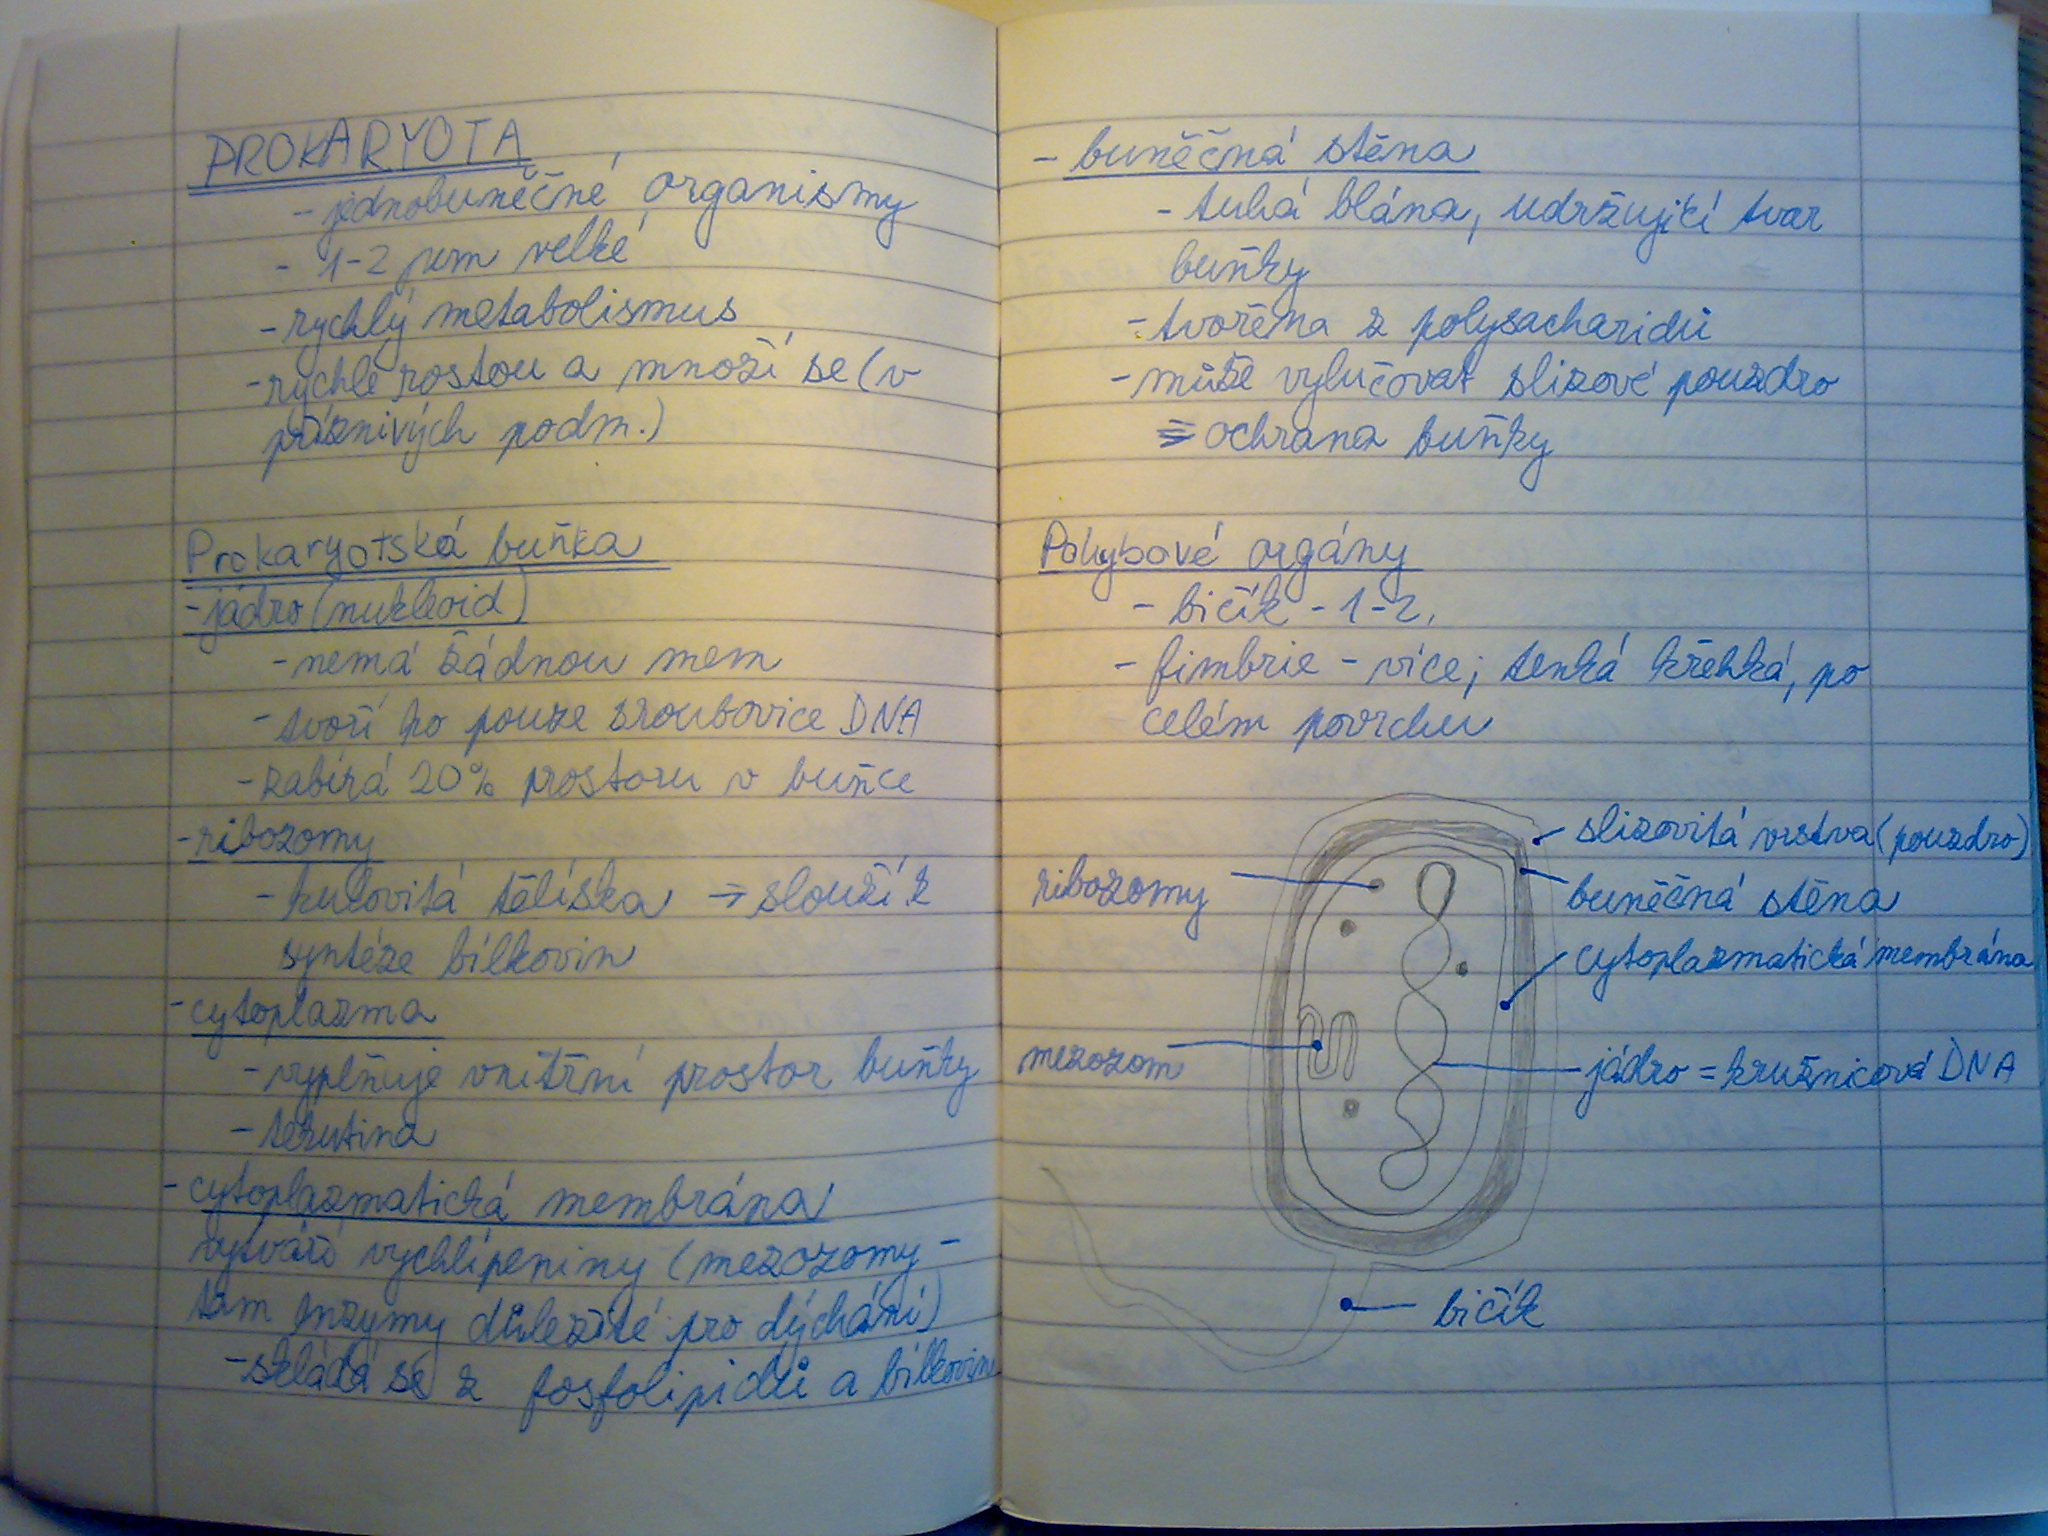 PROKARYOTA
- jednobuněčné organismy
- 1-2 μm velké
- rychlý metabolismus
- rychle rostou a množí se (v
příznivých podm.)
Prokaryotská buňka
- jádro (nukleoid)
- nemá žádnou mem
- tvoří ho pouze šroubovice DNA
- zabírá 20% prostoru v buňce
- ribozomy
- kulovitá tělíska → slouží k
syntéze bílkovin
- cytoplazma
- vyplňuje vnitřní prostor buňky
- tekutina
- cytoplazmatická membrána
vytváří vychlípeniny (mezozomy -
tam enzymy důležité pro dýchání)
- skládá se z fosfolipidů a bílkovin
- buněčná stěna
- tuhá blána, udržující tvar
buňky
- tvořena z polysacharidů
- může vylučovat slizové pouzdro
= ochrana buňky
Pohybové orgány
- bičík - 1-2,
- fimbrie - více; tenká křehká, po
celém povrchu
slizovitá vrstva (pouzdro)
ribozomy
buněčná stěna
cytoplazmatická membrána
mezozom
jádro = kružnicová DNA
bičík